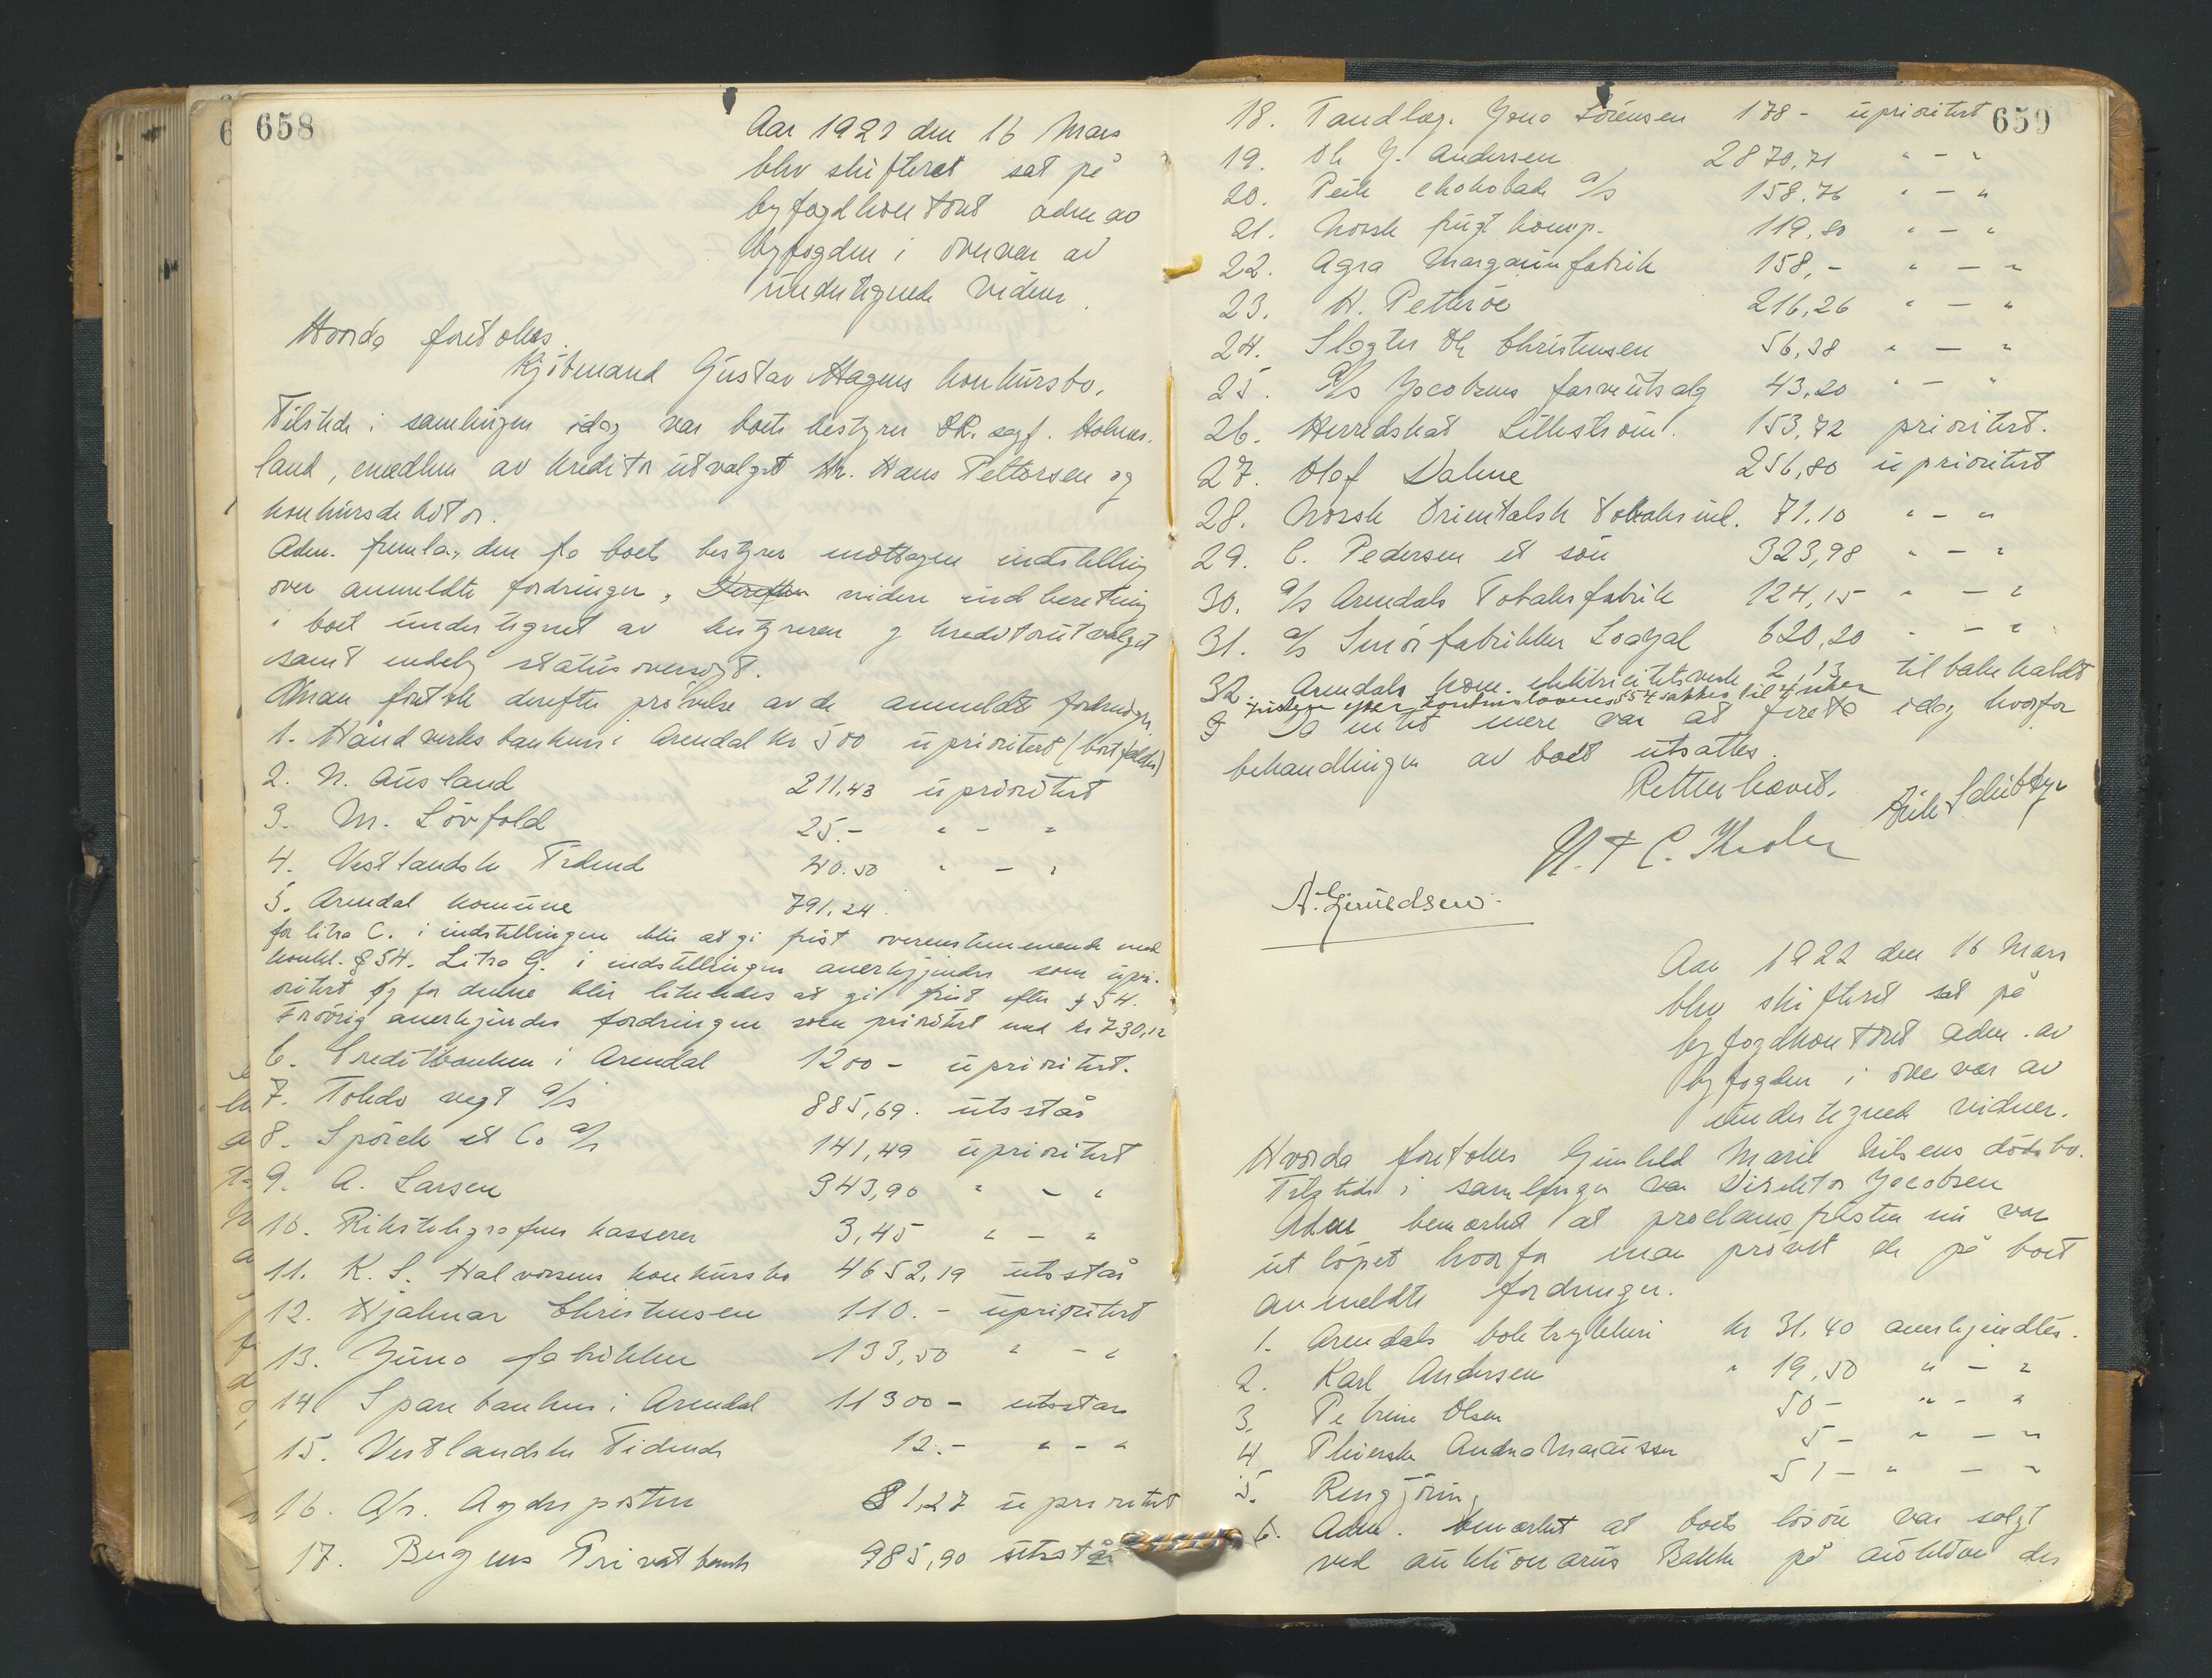 658
Aar 1922 den 16 Mars
blev skifteret sat på
byfogdkontoret adm av
byfogden i overvær av
undertegnede vidner.
Hvorda foretokes.
Kjöbmand Gustav Hagens konkursbo.
Tilstede i samlingen idag var boets bestyrer OR. sagf. Holmes-
land, medlem av kreditorutvalget Hr. Hans Pettersen og
konkursdebitor.
Adm. fremla, den fra boets bestyrer mottagen indstilling
over anmeldte fordringer, videre indberetning
i boet undertegnet av bestyreren og kreditorutvalget
samt endelig statusoversigt.
Man foretok derefter prövelse av de anmeldte fordringer,
1. Håndverksbanken i Arendal kr 500 uprioritert (bortfalder)
2. N. Ausland 211,43 uprioritert
3. M. Lövfold 25.- " - "
4. Vestlandske Tidend 40.50 " - "
5. Arendal komune 791,24.
for litra C. i indstillingen blir at gi frist overenstemmende med
konkl. § 54. Litra G. i indstillingen anerkjendes som upri-
oritert og for denne blir likeledes at gi frist efter § 54.
Forövrig anerkjendes fordringen som prioritert med kr 730,12
6. Creditbanken i Arendal 1200 - uprioritert.
7. Toledo vegt a/s 885,69. utstår
8. Spörck et Co a/s 141,49 uprioritert
9. A. Larsen 343,90 " - "
10. Rikstelegrafens kasserer 3,45 " - "
11. K. S. Halvorsens konkursbo 4652,19 utstår
12. Hjalmar Christensen 110.- uprioritert
13. Juno fabikken 133,50 " - "
14 Sparebanken i Arendal 11300 - utstår
15. Vestlandske Tidende 12.- " - "
16. A/s. Agderposten 81,27 uprioritert
17. Bergens Privatbank 985,90 utstår
659
18. Tandlæg. Jens Sörensen 178 - uprioritert
19. Th J. Andersen 2870,71 " - "
20. Peik chokolade a/s 158,76 " - "
21. Norsk frugt komp. 119,80 " - "
22. Agra Margarinfabrik 158,- " - "
23. H. Petteröe 216,26 " - "
24. Slagter Th Christensen 56,38 " - "
25. a/s Jacobsens farveutsalg 43,20 " - "
26. Herredskas Lilleström. 153,72 prioritert.
27. Olaf Dahne 256,80 uprioritert
28. Norsk Orientalsk Tobaksind. 71.10 " - "
29. C. Pedersen et sön 323,98 " - "
30. a/s Arendals Tobaksfabrik 124,15 " - "
31. a/s Smörfabrikken Loayal 620,20 " - "
32. Arendals kom. elektricitetsverk 2,13 tilbakekaldt
fristen efter konkurslovens § 54 sættes til 4 uker
Da intet mere var at foreta idag hvorfor
behandlingen av boet utsattes.
Retten hævet.
A. Gjeruldsen.
Aar 1922 den 16 Mars
blev skifteret sat på
byfogdkontoret adm. av
byfogden i overvær av
undertegnede vidner.
Hvorda foretokes Gunhild Marie Nilsens dödsbo.
Tilstede i samlingen var Direktör Jacobsen
Adm bemerket at proclamafristen nu var
utlöpet hvorfor man prövet de på boet
anmeldte fordringer.
1. Arendals boktrykkeri kr 31.40 anerkjendtes.
2. Karl Andersen " 19,50 " - "
3. Petrine Olsen 50 - " - "
4 Pleierske Andrea Mariussen 5 - " - "
5. Rengjöring 51 - " - "
6. Adm. bemerket at boets lösöre var solgt
ved auktionarius Bakke på auktion der